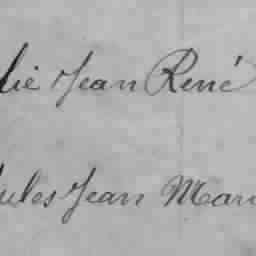 lie Jean René
Jules Jean Mari